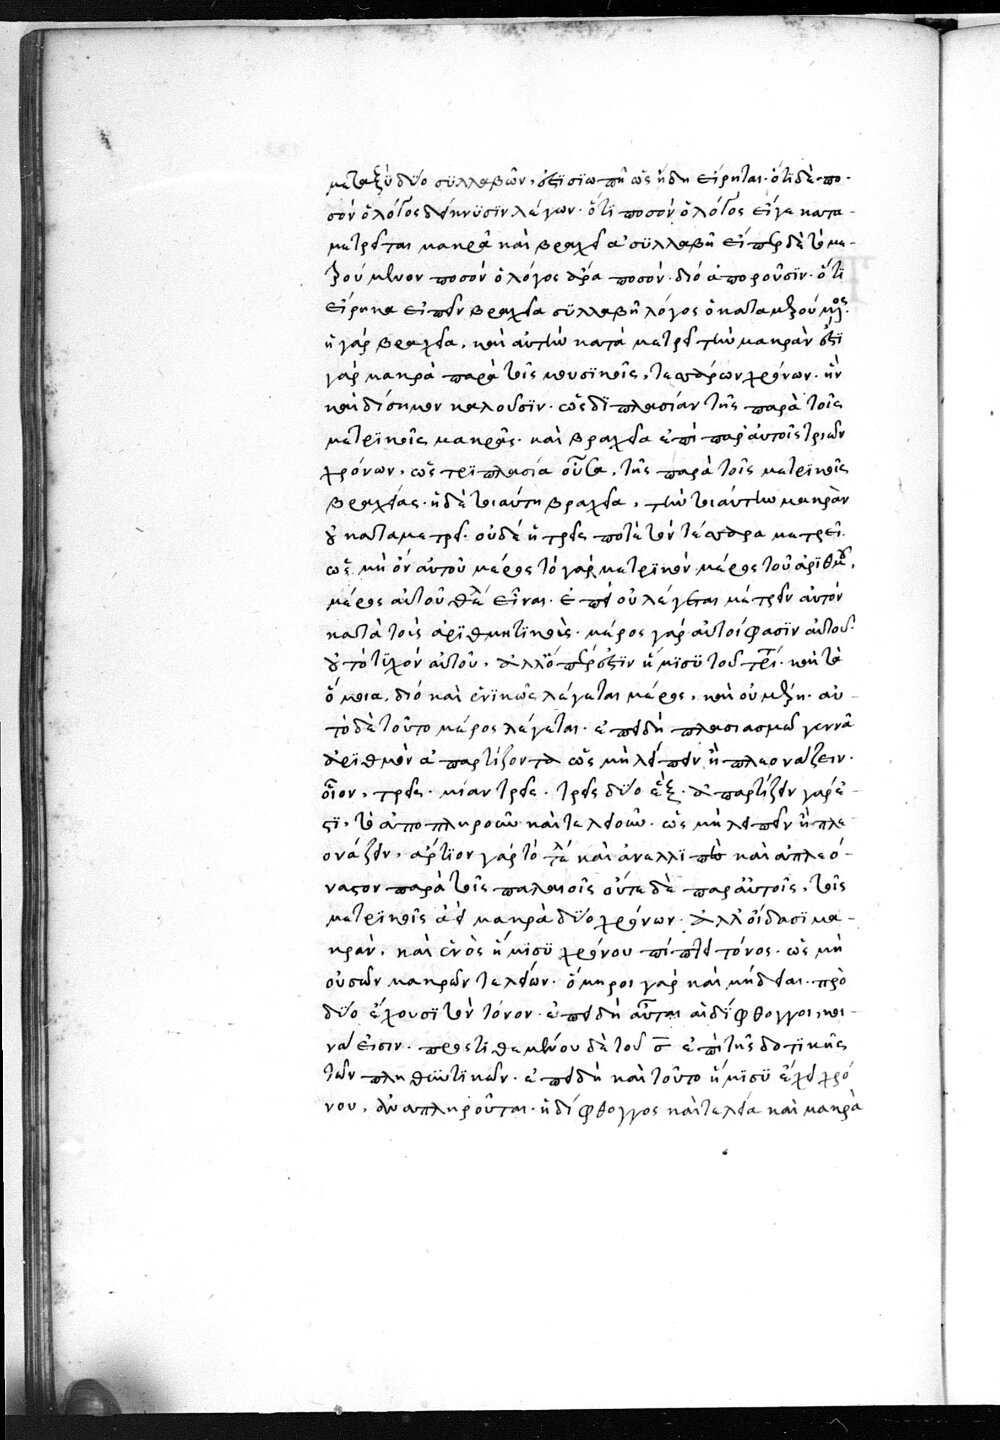 μεταξὺ δύο συλλαβῶν, ἐστὶ σιωπὴ ὡς ἤδη εἴρηται· ὅτι δὲ πο-
σὸν ὁ λόγος δείκνυσιν λέγων· ὅτι ποσὸν ὁ λόγος εἴγε κατα-
μετρεῖται μακρᾶ καὶ βραχεία συλλαβῆ εἴπερ δὲ τὸ με-
τρούμενον ποσὸν ὁ λόγος ἄρα ποσόν· διὸ ἀποροῦσιν· ὅτι
εἴρηκα εἰπεῖν βραχεῖα συλλαβὴ λόγος ὁ καταμετρούμενος·
ἡ γὰρ βραχεῖα, καὶ αὐτὴν καταμετρεῖ τὴν μακρὰν ἐστὶ
γὰρ μακρὰ παρὰ τοῖς μουσικοῖς, τεσσάρων χρόνων· ἣν
καὶ δίσημον καλοῦσιν· ὡς διπλασίαν τῆς παρὰ τοῖς
μετρικοῖς μακρᾶς· καὶ βραχεῖα ἐπὶ παρ' αὐτοῖς τριῶν
χρόνων, ὡς τριπλασία οὖσα, τῆς παρὰ τοῖς μετρικοῖς
βραχείας· ἡ δὲ τοιαύτη βραχεῖα, τὴν τοιαύτην μακρὰν
οὐ καταμετρεῖ· οὐδὲ ἡ τρεῖς ποτὲ τὸν τέσσαρα μετρεῖ·
ὡς μὴ ὂν αὐτοῦ μέρος τὸ γὰρ μετρικὸν μέρος τοῦ ἀριθμοῦ,
μέρος αὐτοῦ θέλει εἶναι· ἐπεὶ οὐ λέγεται μετρεῖν αὐτὸν
κατὰ τοὺς ἀριθμητικοὺς· μέρος γάρ αὐτοί φασιν αὐτοῦ·
οὐ τὸ τυχὸν αὐτοῦ, ἀλλ' ὅπερ ἐστὶν ἥμισυ τοῦ τρί· καὶ τὰ
ὅμοια, διὸ καὶ ἑνικῶς λέγεται μέρος, καὶ οὐ μέρη· αὐ-
τὸ δὲ τοῦτο μέρος λέγεται· ἐπειδὴ πλασιασμῶ γεννᾶ
ἀριθμὸν ἀπαρτίζοντα ὡς μὴ λείπειν ἢ πλεονάζειν·
οἷον, τρεῖς· μίαν τρεῖς· τρεῖς δύο ἕξ· ἀπαρτίζειν γάρ ἐ-
στι, τὸ ἀποπληροῦν καὶ τελειοῦν· ὡς μὴ λείπειν ἢ πλε-
ονάζειν, ἄρτιον γὰρ τὸ τέλειον καὶ ἀνελλιπὲς καὶ ἀπλεό-
ναστον παρὰ τοῖς παλαιοῖς οὔτε δὲ παρ' αὐτοῖς, τοῖς
μετρικοῖς ἀεὶ μακρὰ δύο χρόνων· ἀλλ' οἴδασι μα-
κρὰν, καὶ ἑνὸς ἥμισυ χρόνου πίπτει τόνος· ὡς μὴ
οὐσῶν μακρῶν τελείων· ὅμηροι γὰρ καὶ μήδειαι· πρὸ
δύο ἔχουσι τὸν τόνον· ἐπειδὴ αὗται αἱ δίφθογγοι, κοι-
ναί εἰσιν· προστιθεμένου δὲ τοῦ σ ἐπὶ τῆς δοτικῆς
τῶν πληθυντικῶν· ἐπειδὴ καὶ τοῦτο ἥμισυ ἔχει χρό-
νου, ἀναπληροῦται· ἡ δίφθογγος καὶ τελεία καὶ μακρὰ